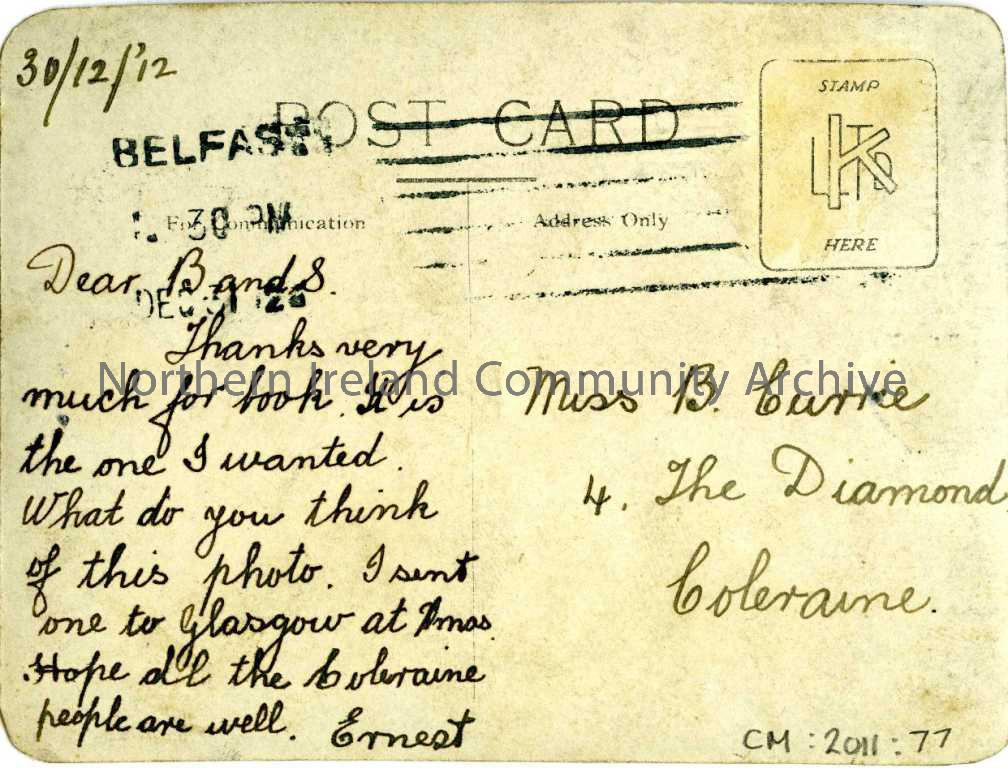 30/12/'12
POST CARD
BELFAST
1. 30 PM
DEC 31 12
For Communication
Address Only
STAMP
K LTD
HERE
Dear B and S.
Thanks very
much for book. It is
the one I wanted.
What do you think
of this photo. I sent
one to Glasgow at Xmas.
Hope all the Coleraine
people are well. Ernest
Miss B. Currie
4. The Diamond
Coleraine.
Northern Ireland Community Archive
CM : 2011 : 77